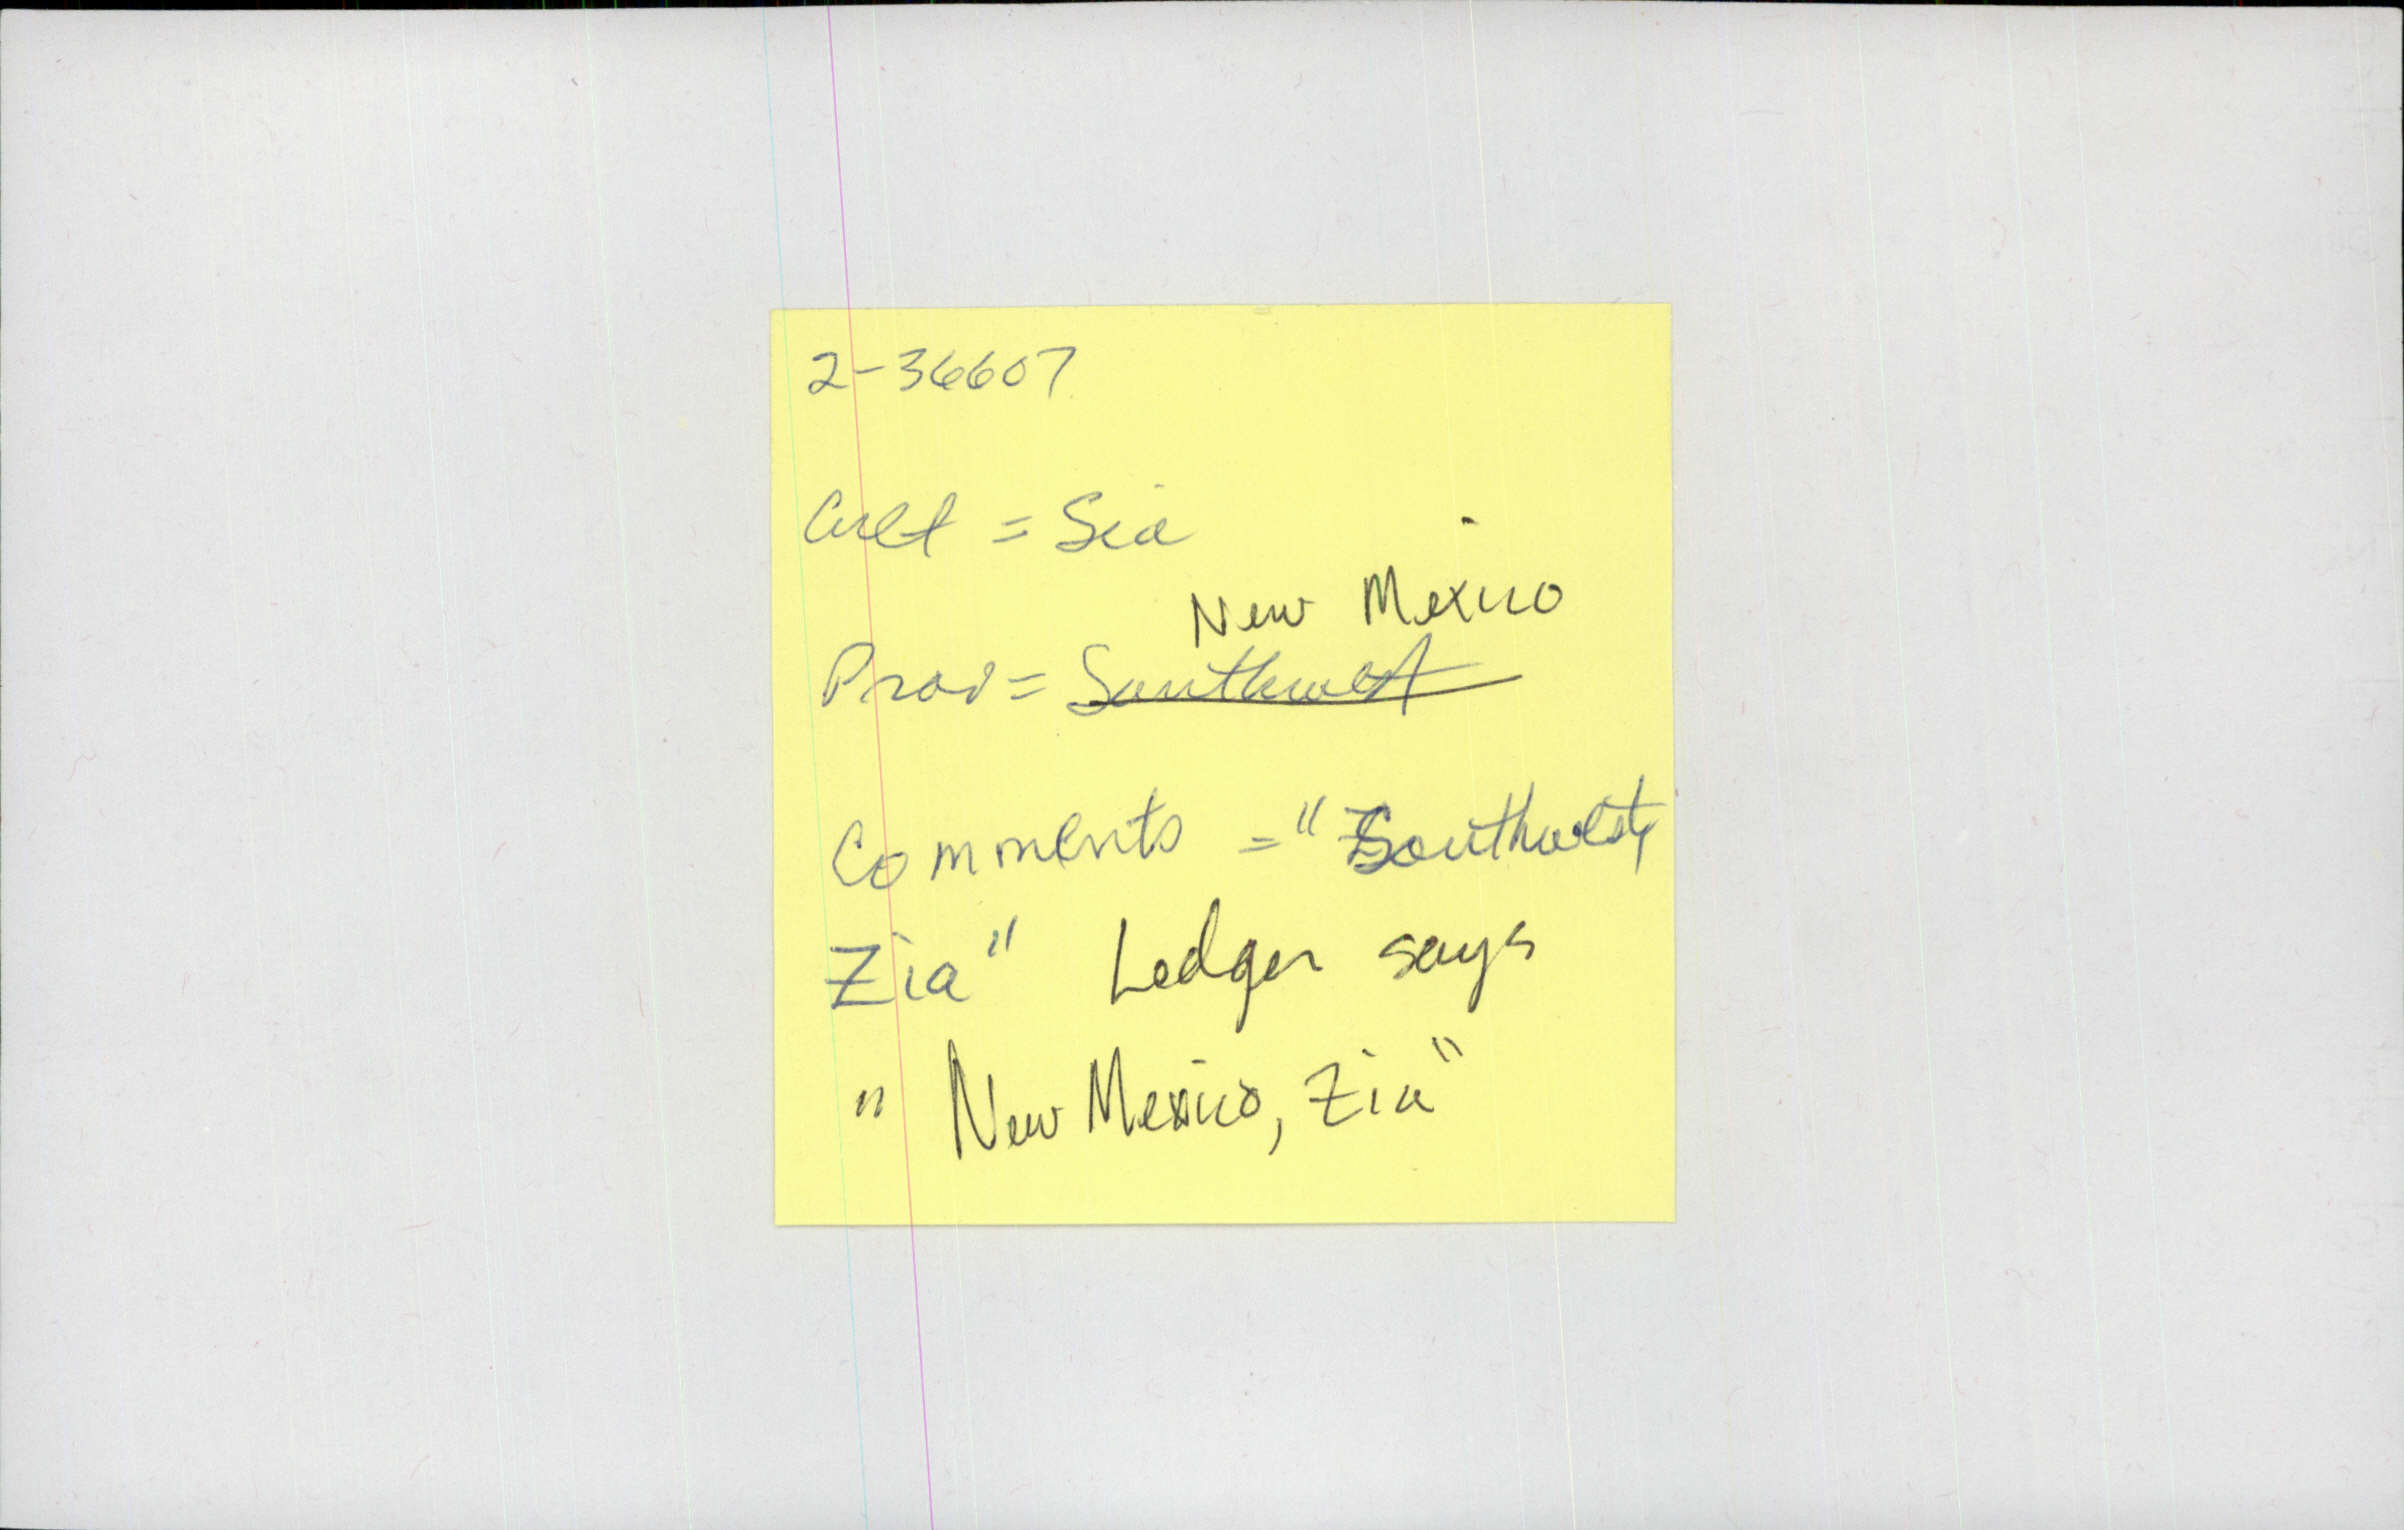 2-36607
Cult = Sia
New Mexico
Prov = Southwest
Comments = "Southwest,
Zia" Ledger says
"New Mexico, Zia"